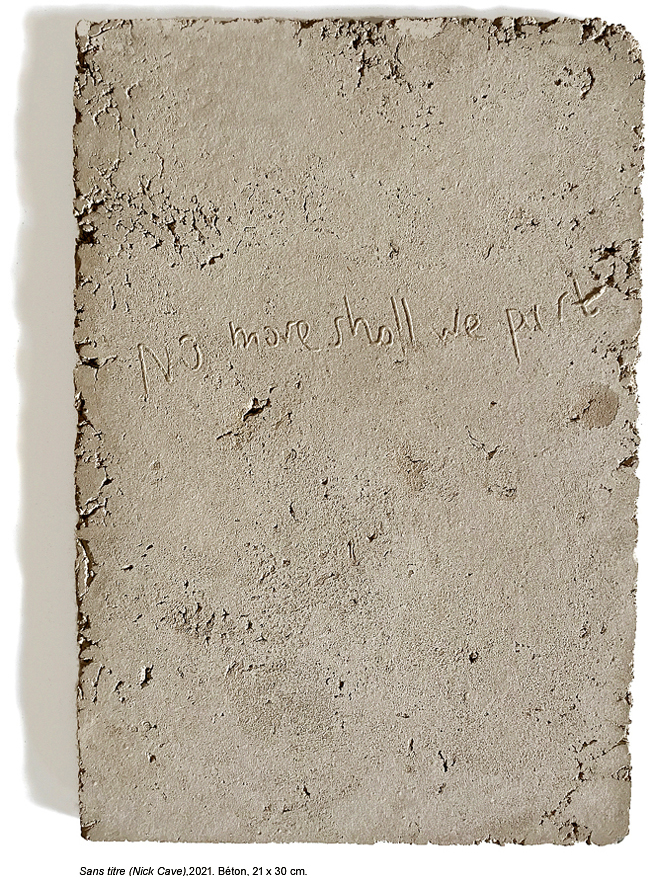 No more shall we part
Sans titre (Nick Cave),2021. Béton, 21 x 30 cm.